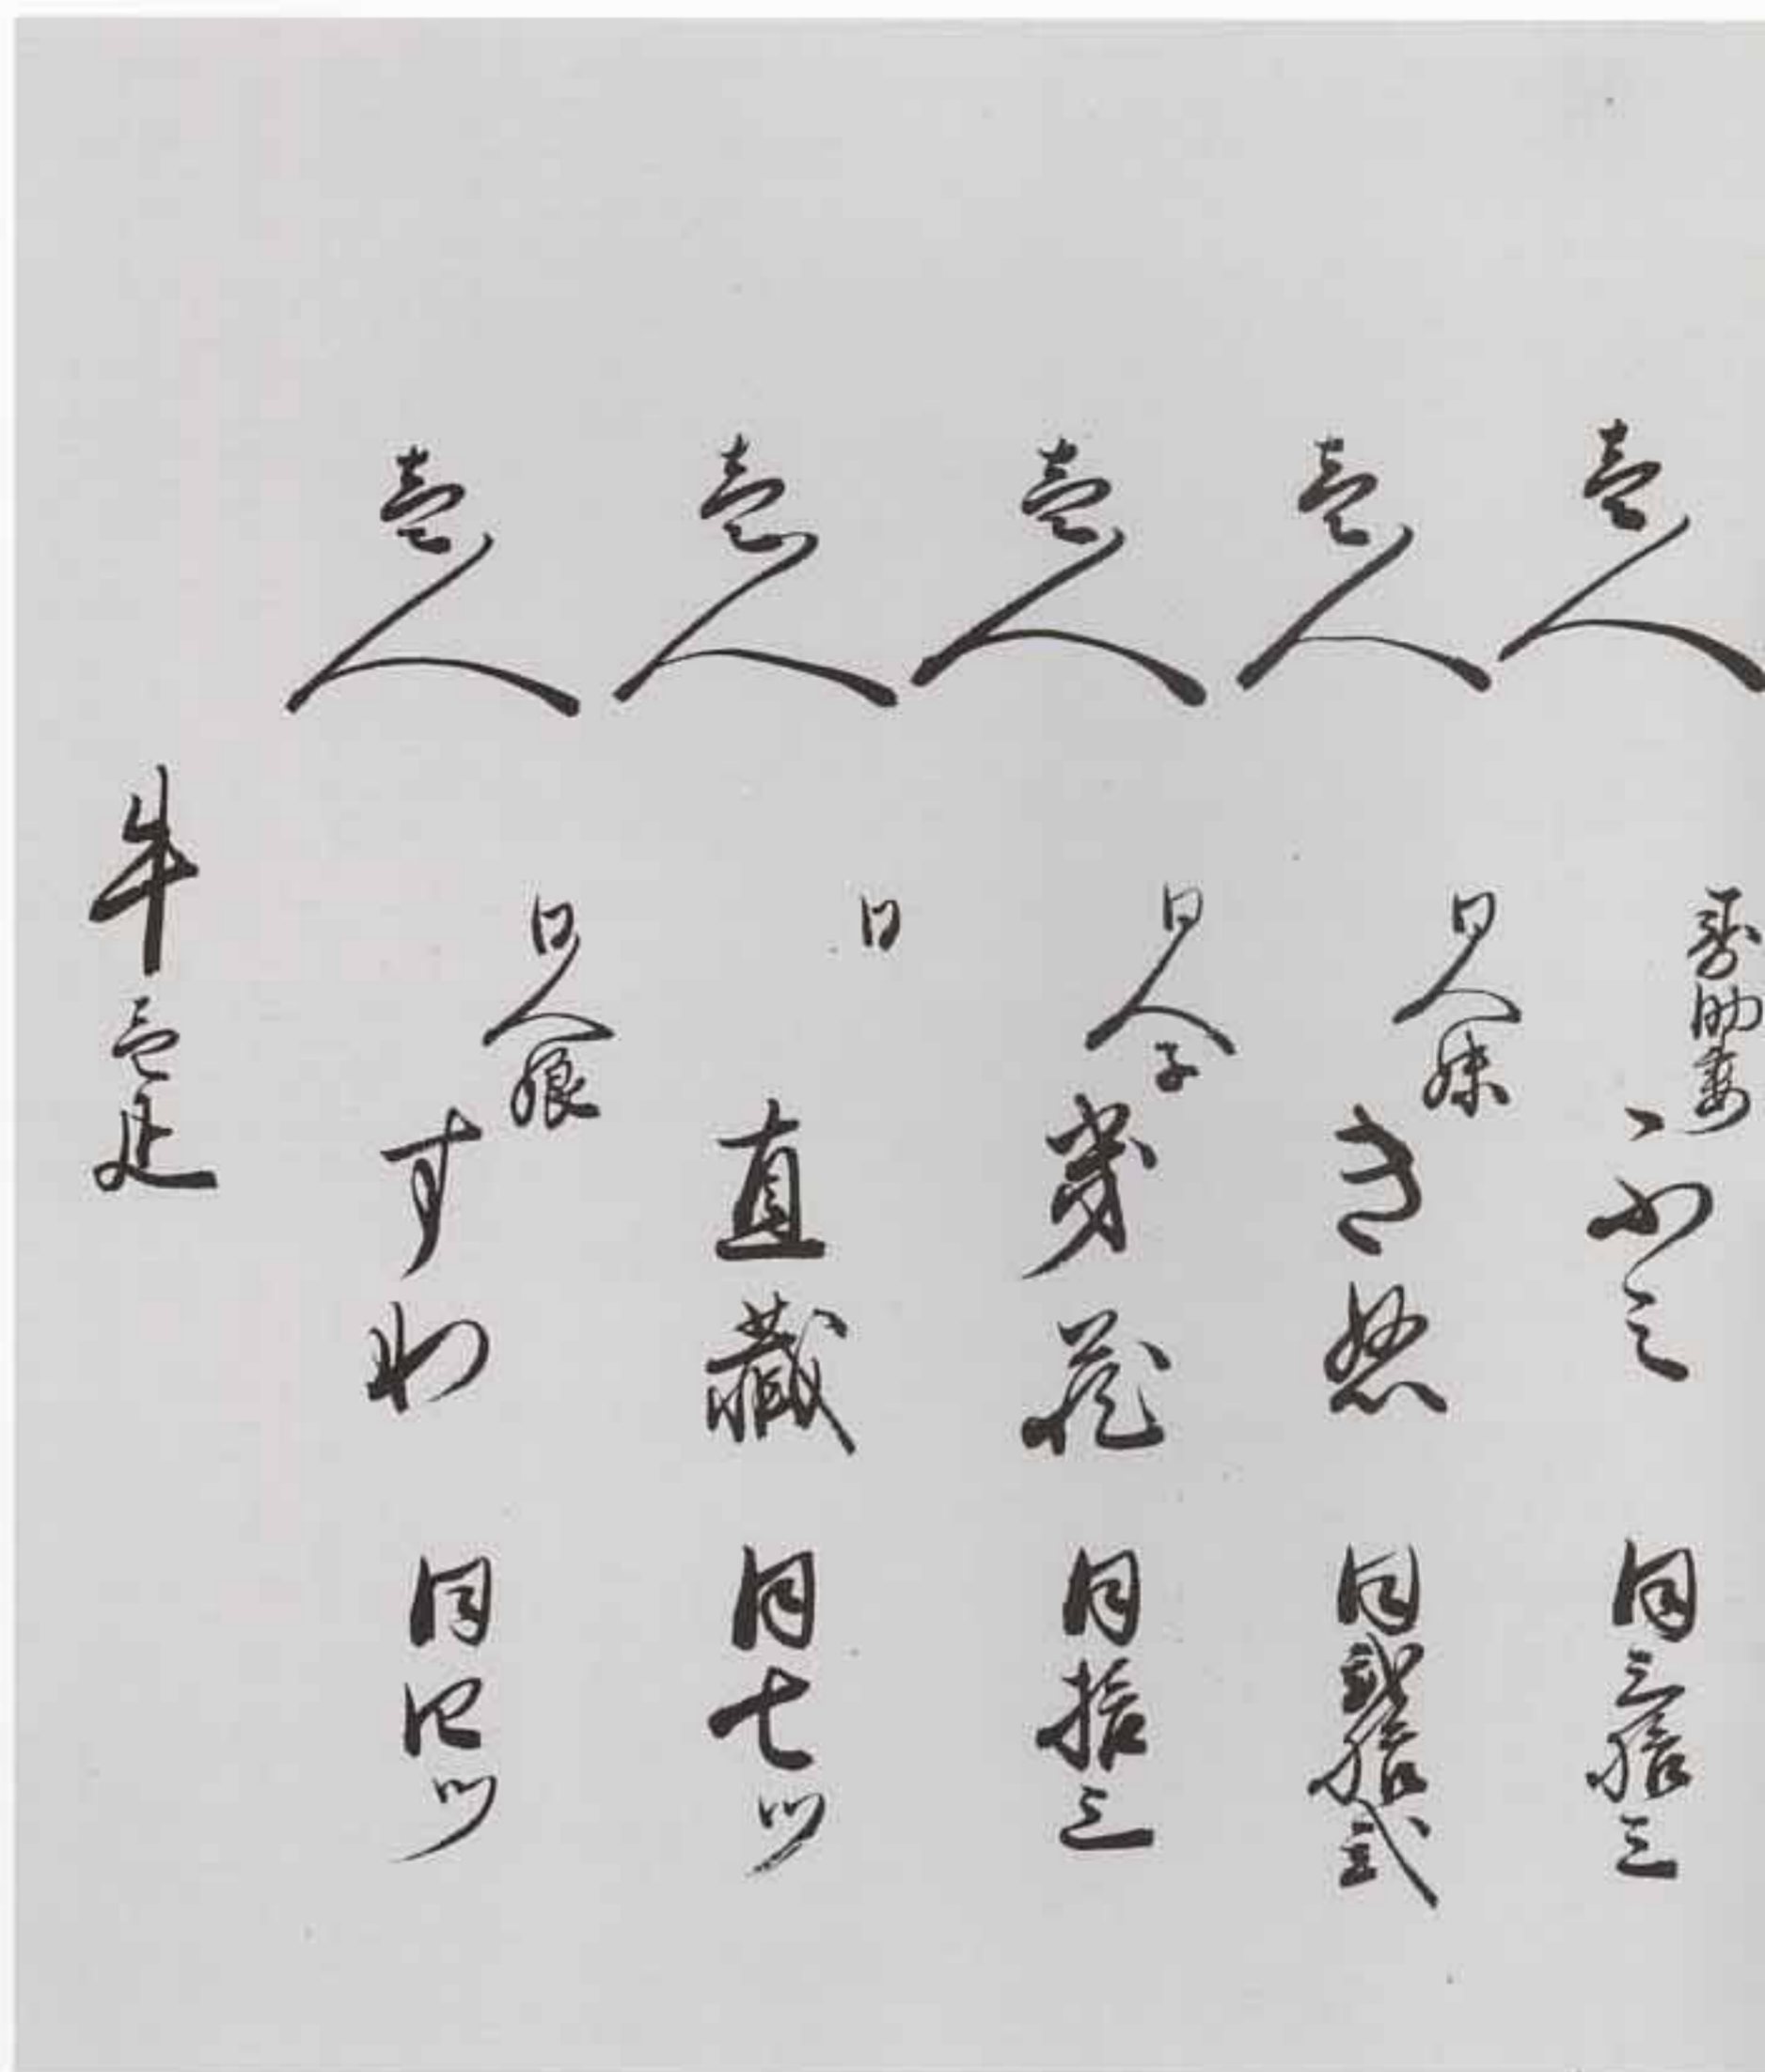 壱人 助妻 ふミ 同三拾三
壱人 同人妹 きぬ 同弐拾弐
壱人 同人子 幾蔵 同拾三
壱人 同 直蔵 同七ツ
壱人 同人娘 すわ 同四ツ
牛壱疋